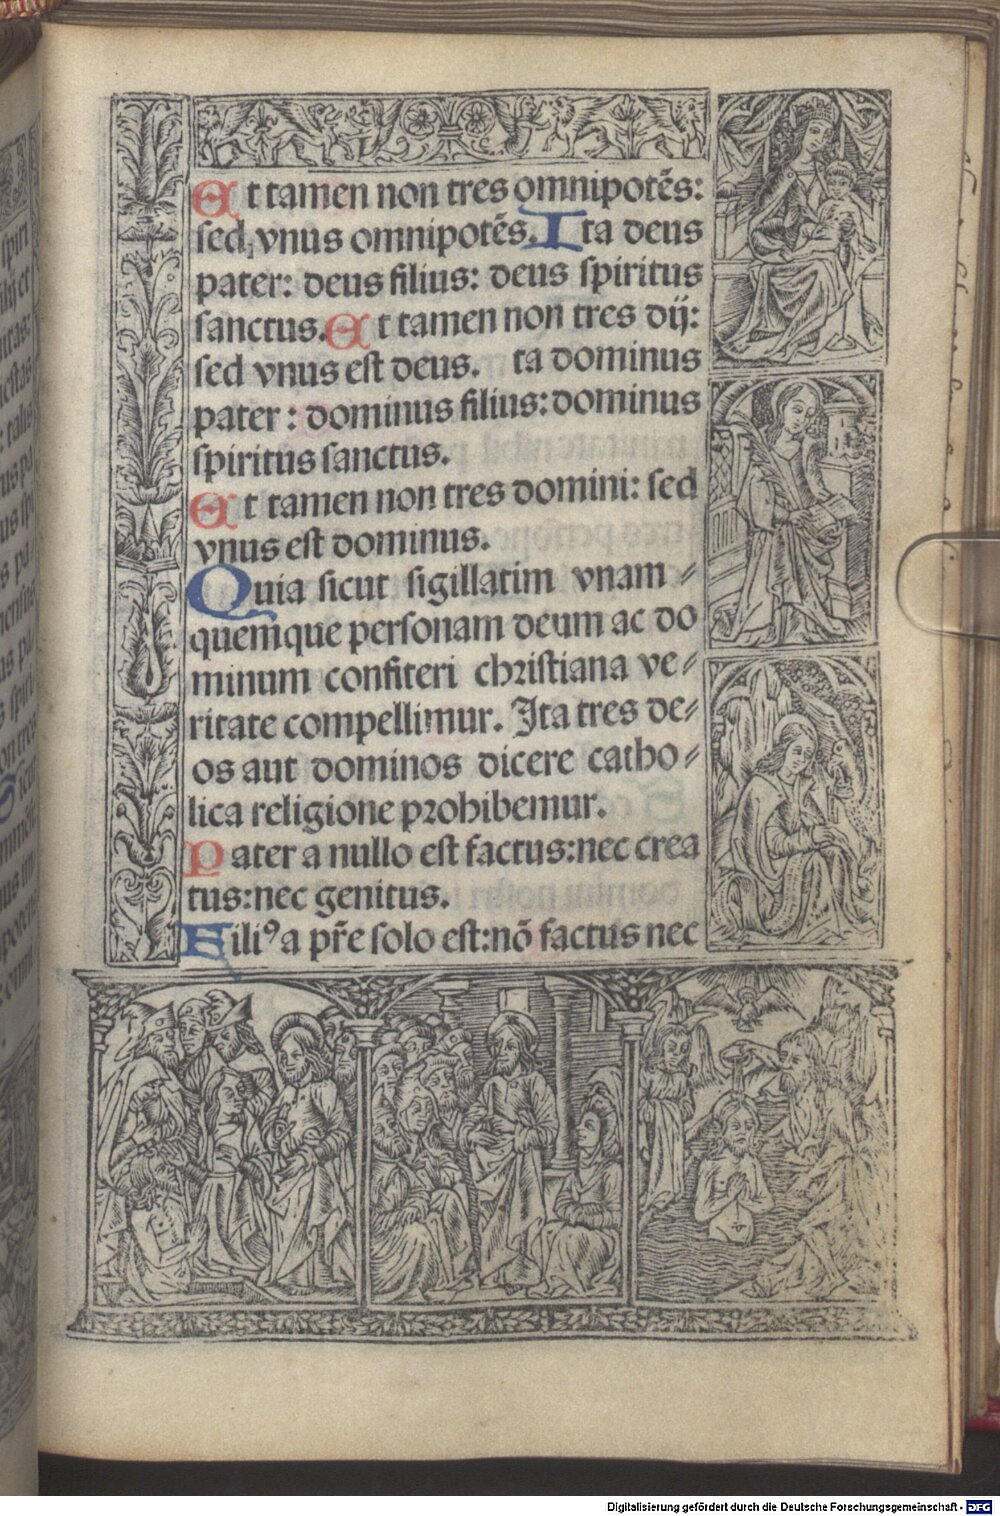 Et tamen non tres omnipotẽs:
sed vnus omnipotẽs. Ita deus
pater: deus filius: deus spiritus
sanctus. Et tamen non tres dij:
sed vnus est deus. ta dominus
pater: dominus filius: dominus
spiritus sanctus.
Et tamen non tres domini: sed
vnus est dominus.
Quia sicut sigillatim vnam⸗
quemque personam deum ac do
minum confiteri christiana ve⸗
ritate compellimur. Ita tres de⸗
os aut dominos dicere catho⸗
lica religione prohibemur.
Pater a nullo est factus: nec crea
tus: nec genitus.
Filiꝰ a pr̃e solo est: nõ factus nec
Digitalisierung gefördert durch die Deutsche Forschungsgemeinschaft - DFG